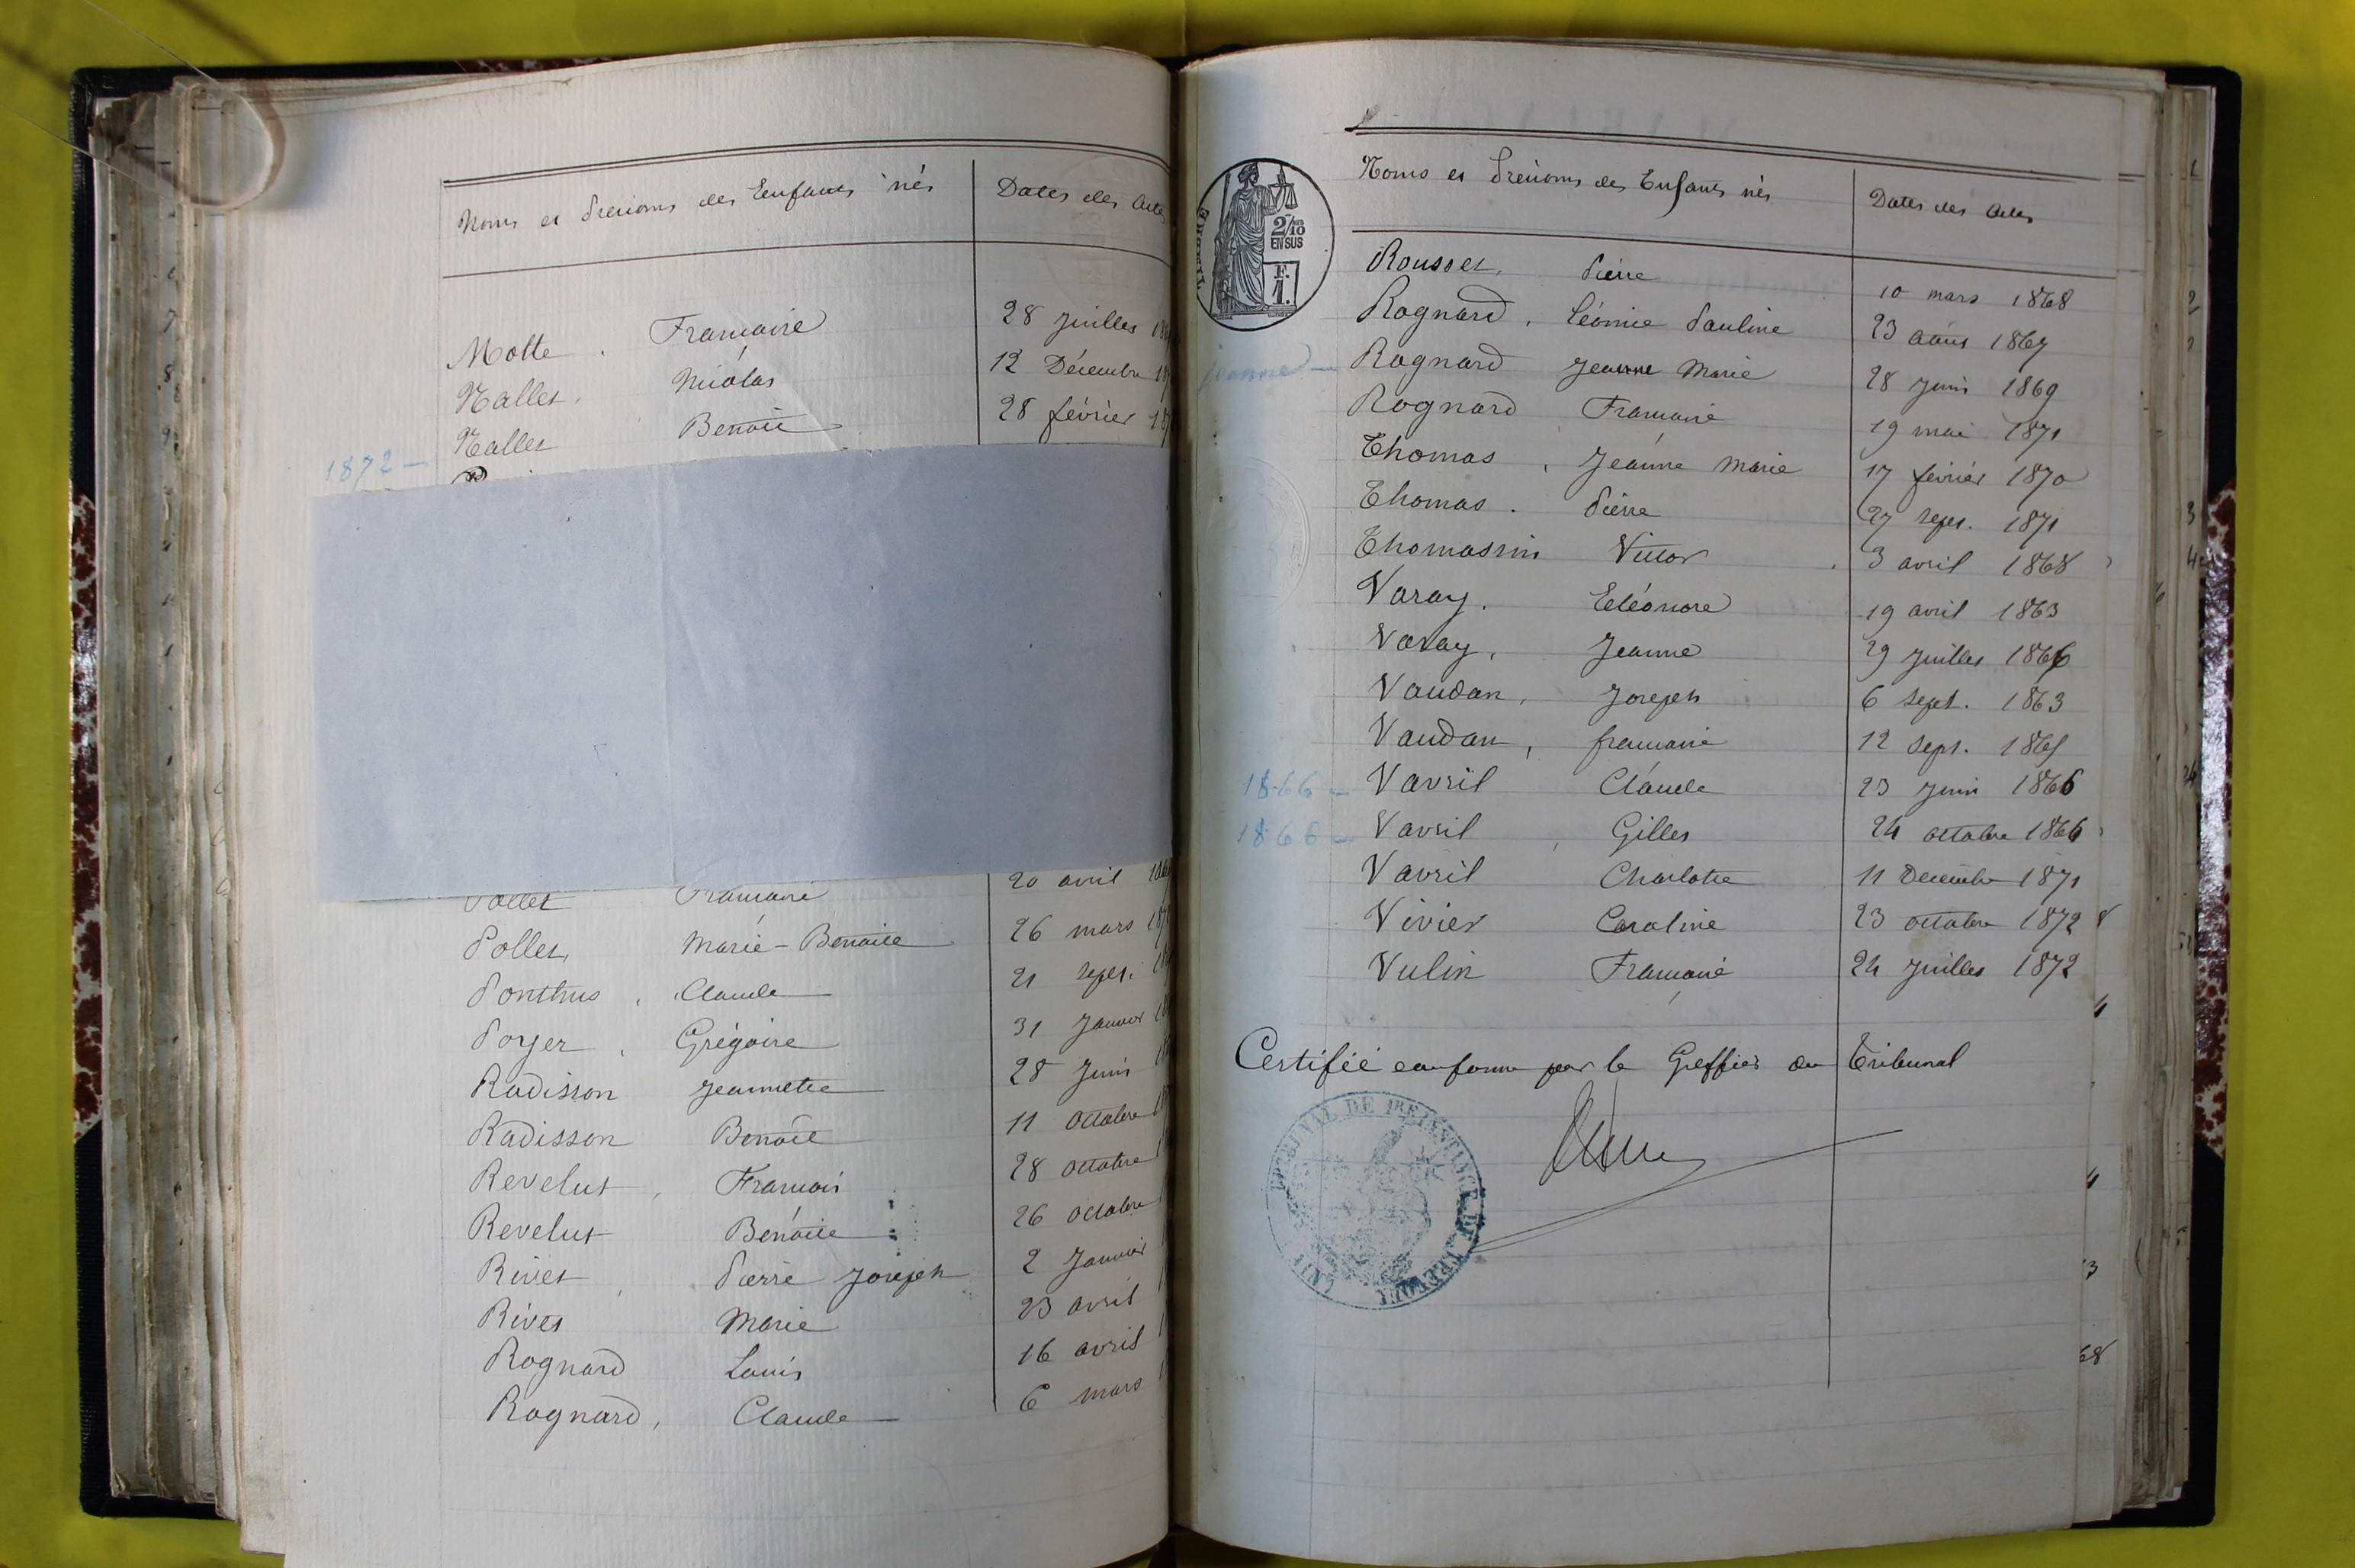 Noms et Prénoms des Enfants nés Dates des Actes
Motte. Françoise 28 Juillet
Nallet, Nicolas 12 Décembre
Nallet Benoît 28 février
1872 —
Pollet Françoise 20 avril
Pollet, Marie-Benoite 26 mars
Ponthus, Claude 21 sept.
Poyer, Grégoire 31 Janvier
Radisson Jeannette 28 Juin
Radisson Benoît 11 Octobre
Revelut, François 28 octobre
Revelut Benoite 26 octobre
Rivet, Pierre Joseph 2 Janvier
Rivet Marie 23 avril
Rognard Louis 16 avril
Rognard, Claude 6 mars
2/10
EN SUS
F.
1.
Noms et Prénoms des Enfants nés Dates des Actes
Rousset, Pierre 10 mars 1868
Rognard, Léonie Pauline 23 août 1867
Jeanne — Rognard Jeanne Marie 28 Juin 1869
Rognard Françoise 19 mai 1871
Thomas, Jeanne Marie 17 février 1870
Thomas. Pierre 27 sept. 1871
Thomassin Victor 3 avril 1868
Varay. Eléonore 19 avril 1863
Varay, Jeanne 29 Juillet 1866
Vaudan, Joseph 6 sept. 1863
Vaudan, françoise 12 sept. 1865
1866 — Vavril Claude 23 Juin 1866
1866 — Vavril, Gilles 24 octobre 1866
Vavril Charlotte 11 Décembre 1871
Vivier Caroline 23 octobre 1872
Vulin Françoise 24 Juillet 1872
Certifié conforme par le Greffier du Tribunal
TRIBUNAL DE 1RE INSTANCE DE TREVOUX